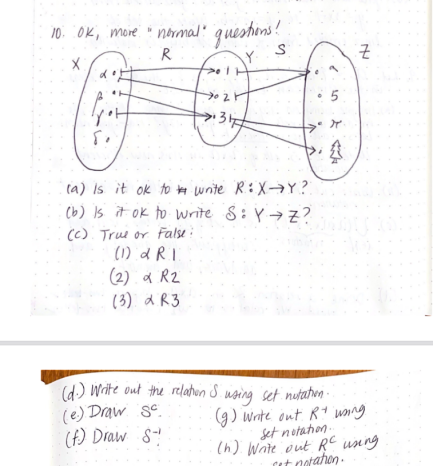 10. OK, more "normal" questions!
R Y S Z
X
α 1 a
β 2 5
γ 3 π
δ
(a) Is it ok to write R: X→Y?
(b) Is it ok to write S: Y→Z?
(c) True or False:
(1) α R 1
(2) α R2
(3) α R3
(d.) Write out the relation S using set notation.
(e.) Draw Sᶜ.
(f) Draw S⁻¹.
(g) Write out R⁻¹ using
set notation.
(h) Write out Rᶜ using
set notation.